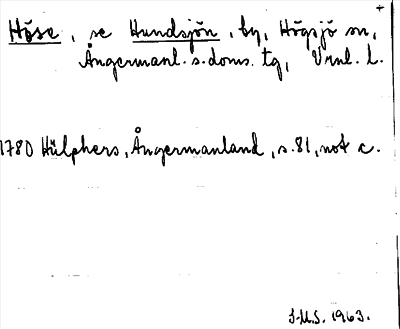 +
Höse, se Hundsjön, by, Högsjö sn,
Ångermanl. s. doms. tg, Vrnl. l.
1780 Hülphers, Ångermanland, s. 81, not c.
S.M.S. 1963.